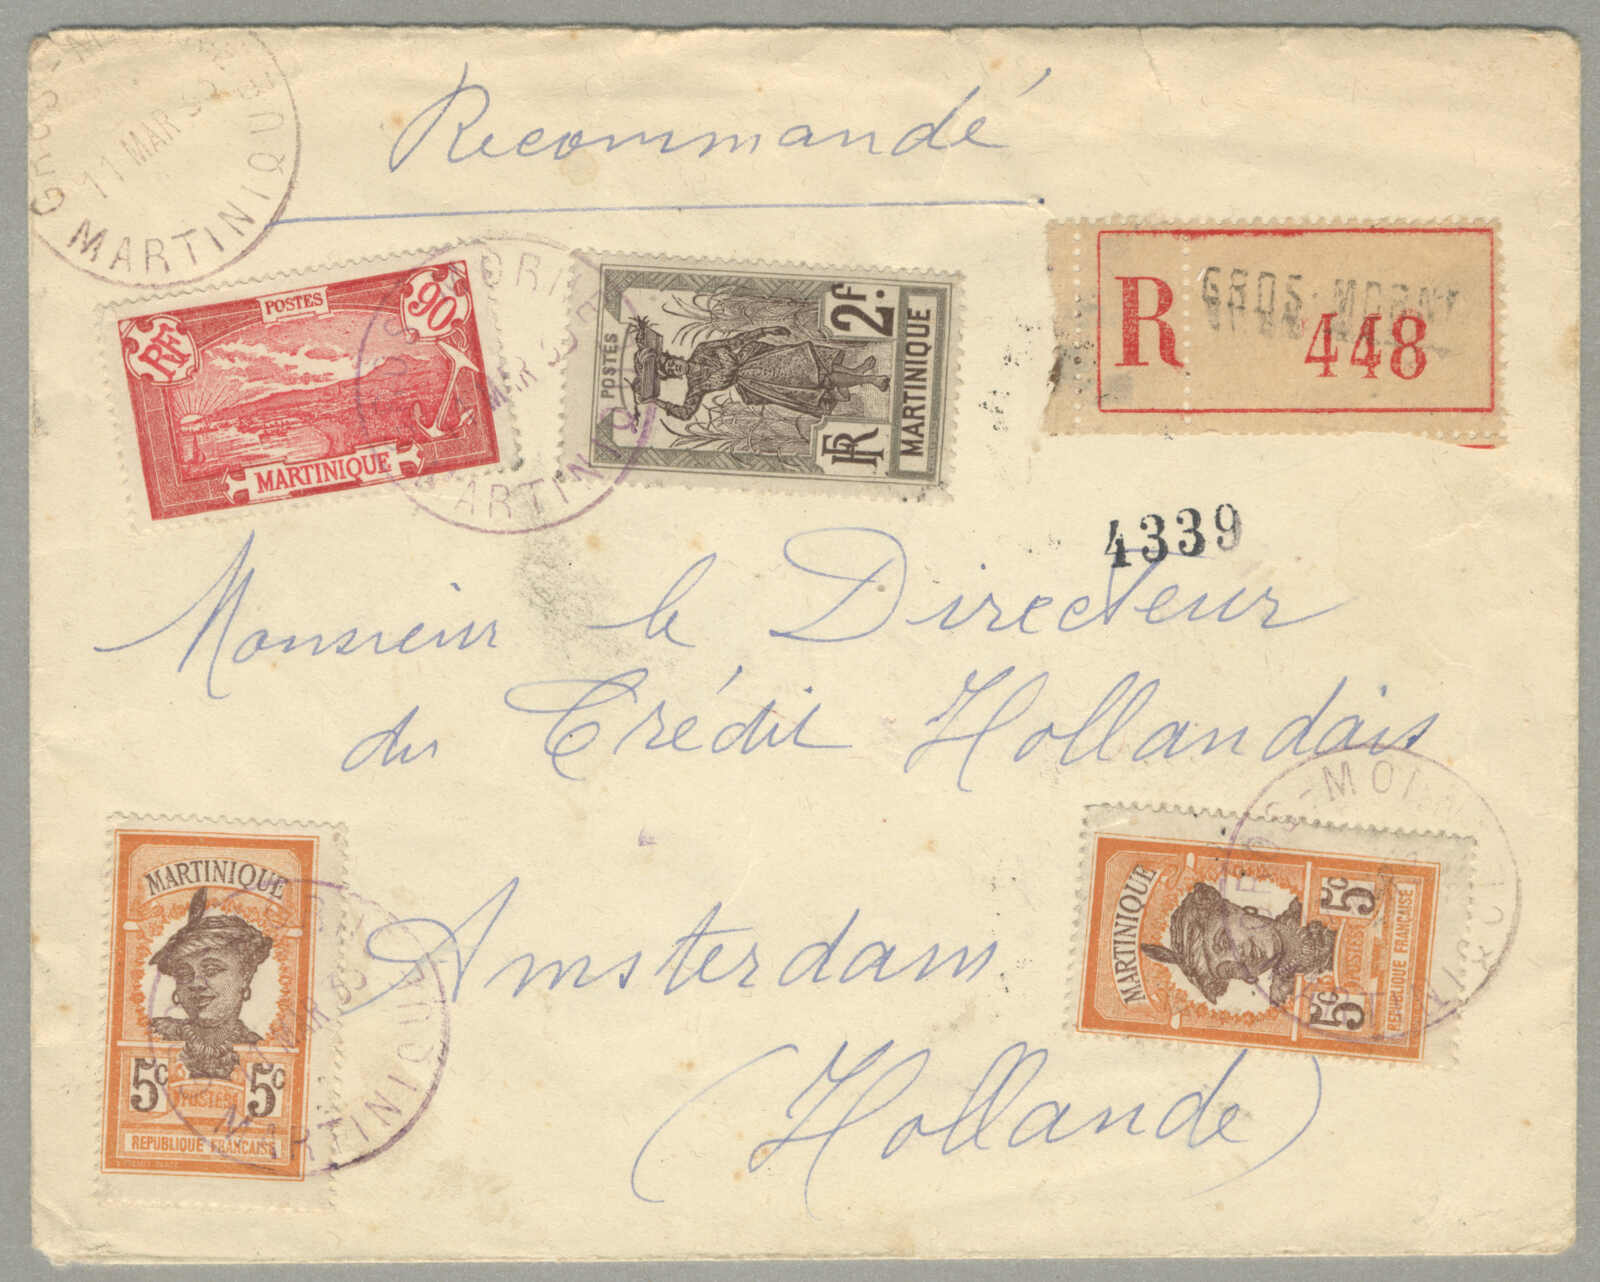 GROS-M
11 MAR 3
MARTINIQUE
Recommandé
POSTES
90
RF
MARTINIQUE
MAR
MARTINIQ
POSTES
2F.
RF
MARTINIQUE
R
GROS-MORNE
448
4339
Monsieur le Directeur
du Crédit Hollandais
Amsterdam
(Hollande)
MARTINIQUE
5c 5c
POSTES
REPUBLIQUE FRANÇAISE
MAR
MARTINIQUE
MARTINIQUE
5c 5c
POSTES
REPUBLIQUE FRANÇAISE